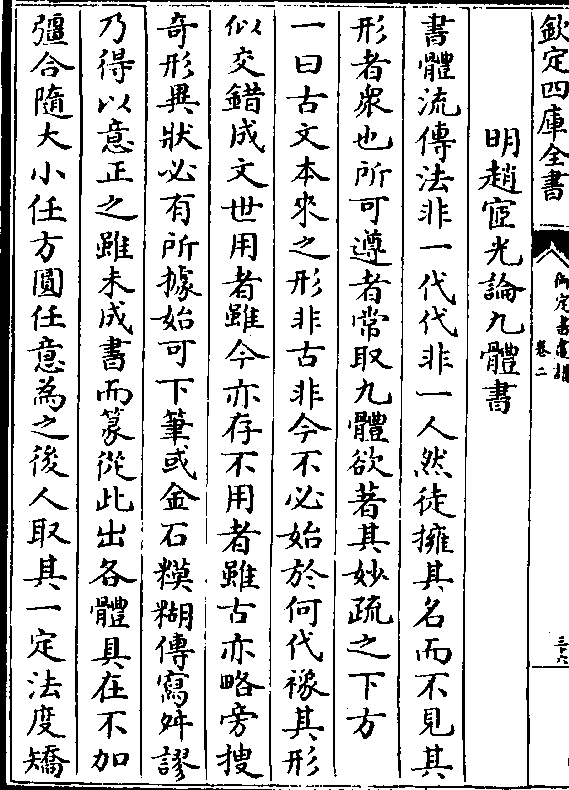 欽定四庫全書
御定書畫譜
卷二
三十六
明趙宧光論九體書
書體流傳法非一代代非一人然徒擁其名而不見其
形者衆也所可遵者常取九體欲著其妙疏之下方
一曰古文本來之形非古非今不必始於何代襐其形
似交錯成文世用者雖今亦存不用者雖古亦略旁搜
奇形異狀必有所據始可下筆或金石糢糊傳寫舛謬
乃得以意正之雖未成書而篆從此出各體具在不加
彊合隨大小任方圓任意為之後人取其一定法度矯